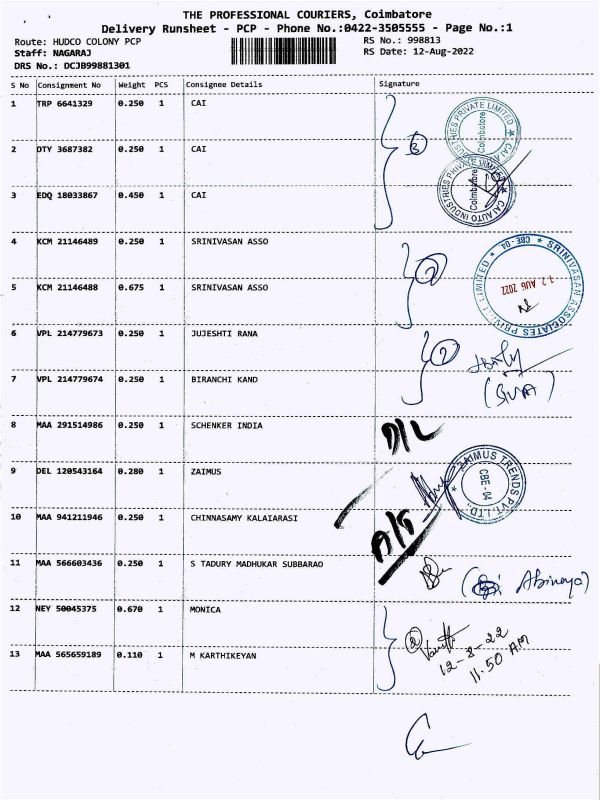 THE PROFESSIONAL COURIERS, Coimbatore
Delivery Runsheet - PCP - Phone No.:0422-3505555 - Page No.:1
Route: HUDCO COLONY PCP RS No.: 998813
Staff: NAGARAJ RS Date: 12-Aug-2022
DRS No.: DCJB99881301
S No Consignment No Weight PCS Consignee Details Signature
1 TRP 6641329 0.250 1 CAI
2 OTY 3687382 0.250 1 CAI
3 EDQ 18033867 0.450 1 CAI
3
CAI INDUSTRIES PRIVATE LIMITED Coimbatore
CAI AUTO INDUSTRIES PRIVATE LIMITED Coimbatore
4 KCM 21146489 0.250 1 SRINIVASAN ASSO
5 KCM 21146488 0.675 1 SRINIVASAN ASSO
2
SRINIVASAN ASSOCIATES PRIVATE LIMITED CBE-04
12 AUG 2022
6 VPL 214779673 0.250 1 JUJESHTI RANA
7 VPL 214779674 0.250 1 BIRANCHI KAND
2
8 MAA 291514986 0.250 1 SCHENKER INDIA
D/L
9 DEL 120543164 0.280 1 ZAIMUS
ZAIMUS TRENDS PVT. LTD. CBE-04
10 MAA 941211946 0.250 1 CHINNASAMY KALAIARASI
11 MAA 566603436 0.250 1 S TADURY MADHUKAR SUBBARAO
Abinaya
12 NEY 50045375 0.670 1 MONICA
13 MAA 565659189 0.110 1 M KARTHIKEYAN
2
12-8-22
11.50 AM